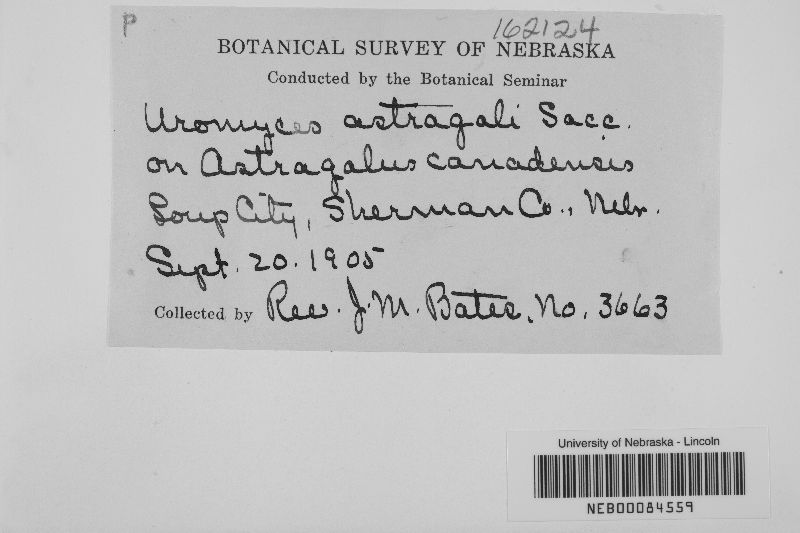 P
162124
BOTANICAL SURVEY OF NEBRASKA
Conducted by the Botanical Seminar
Uromyces astragali Sacc.
on Astragalus canadensis
Loup City, Sherman Co., Nebr.
Sept. 20. 1905
Collected by Rev. J. M. Bates, No. 3663
University of Nebraska - Lincoln
NEB00084559